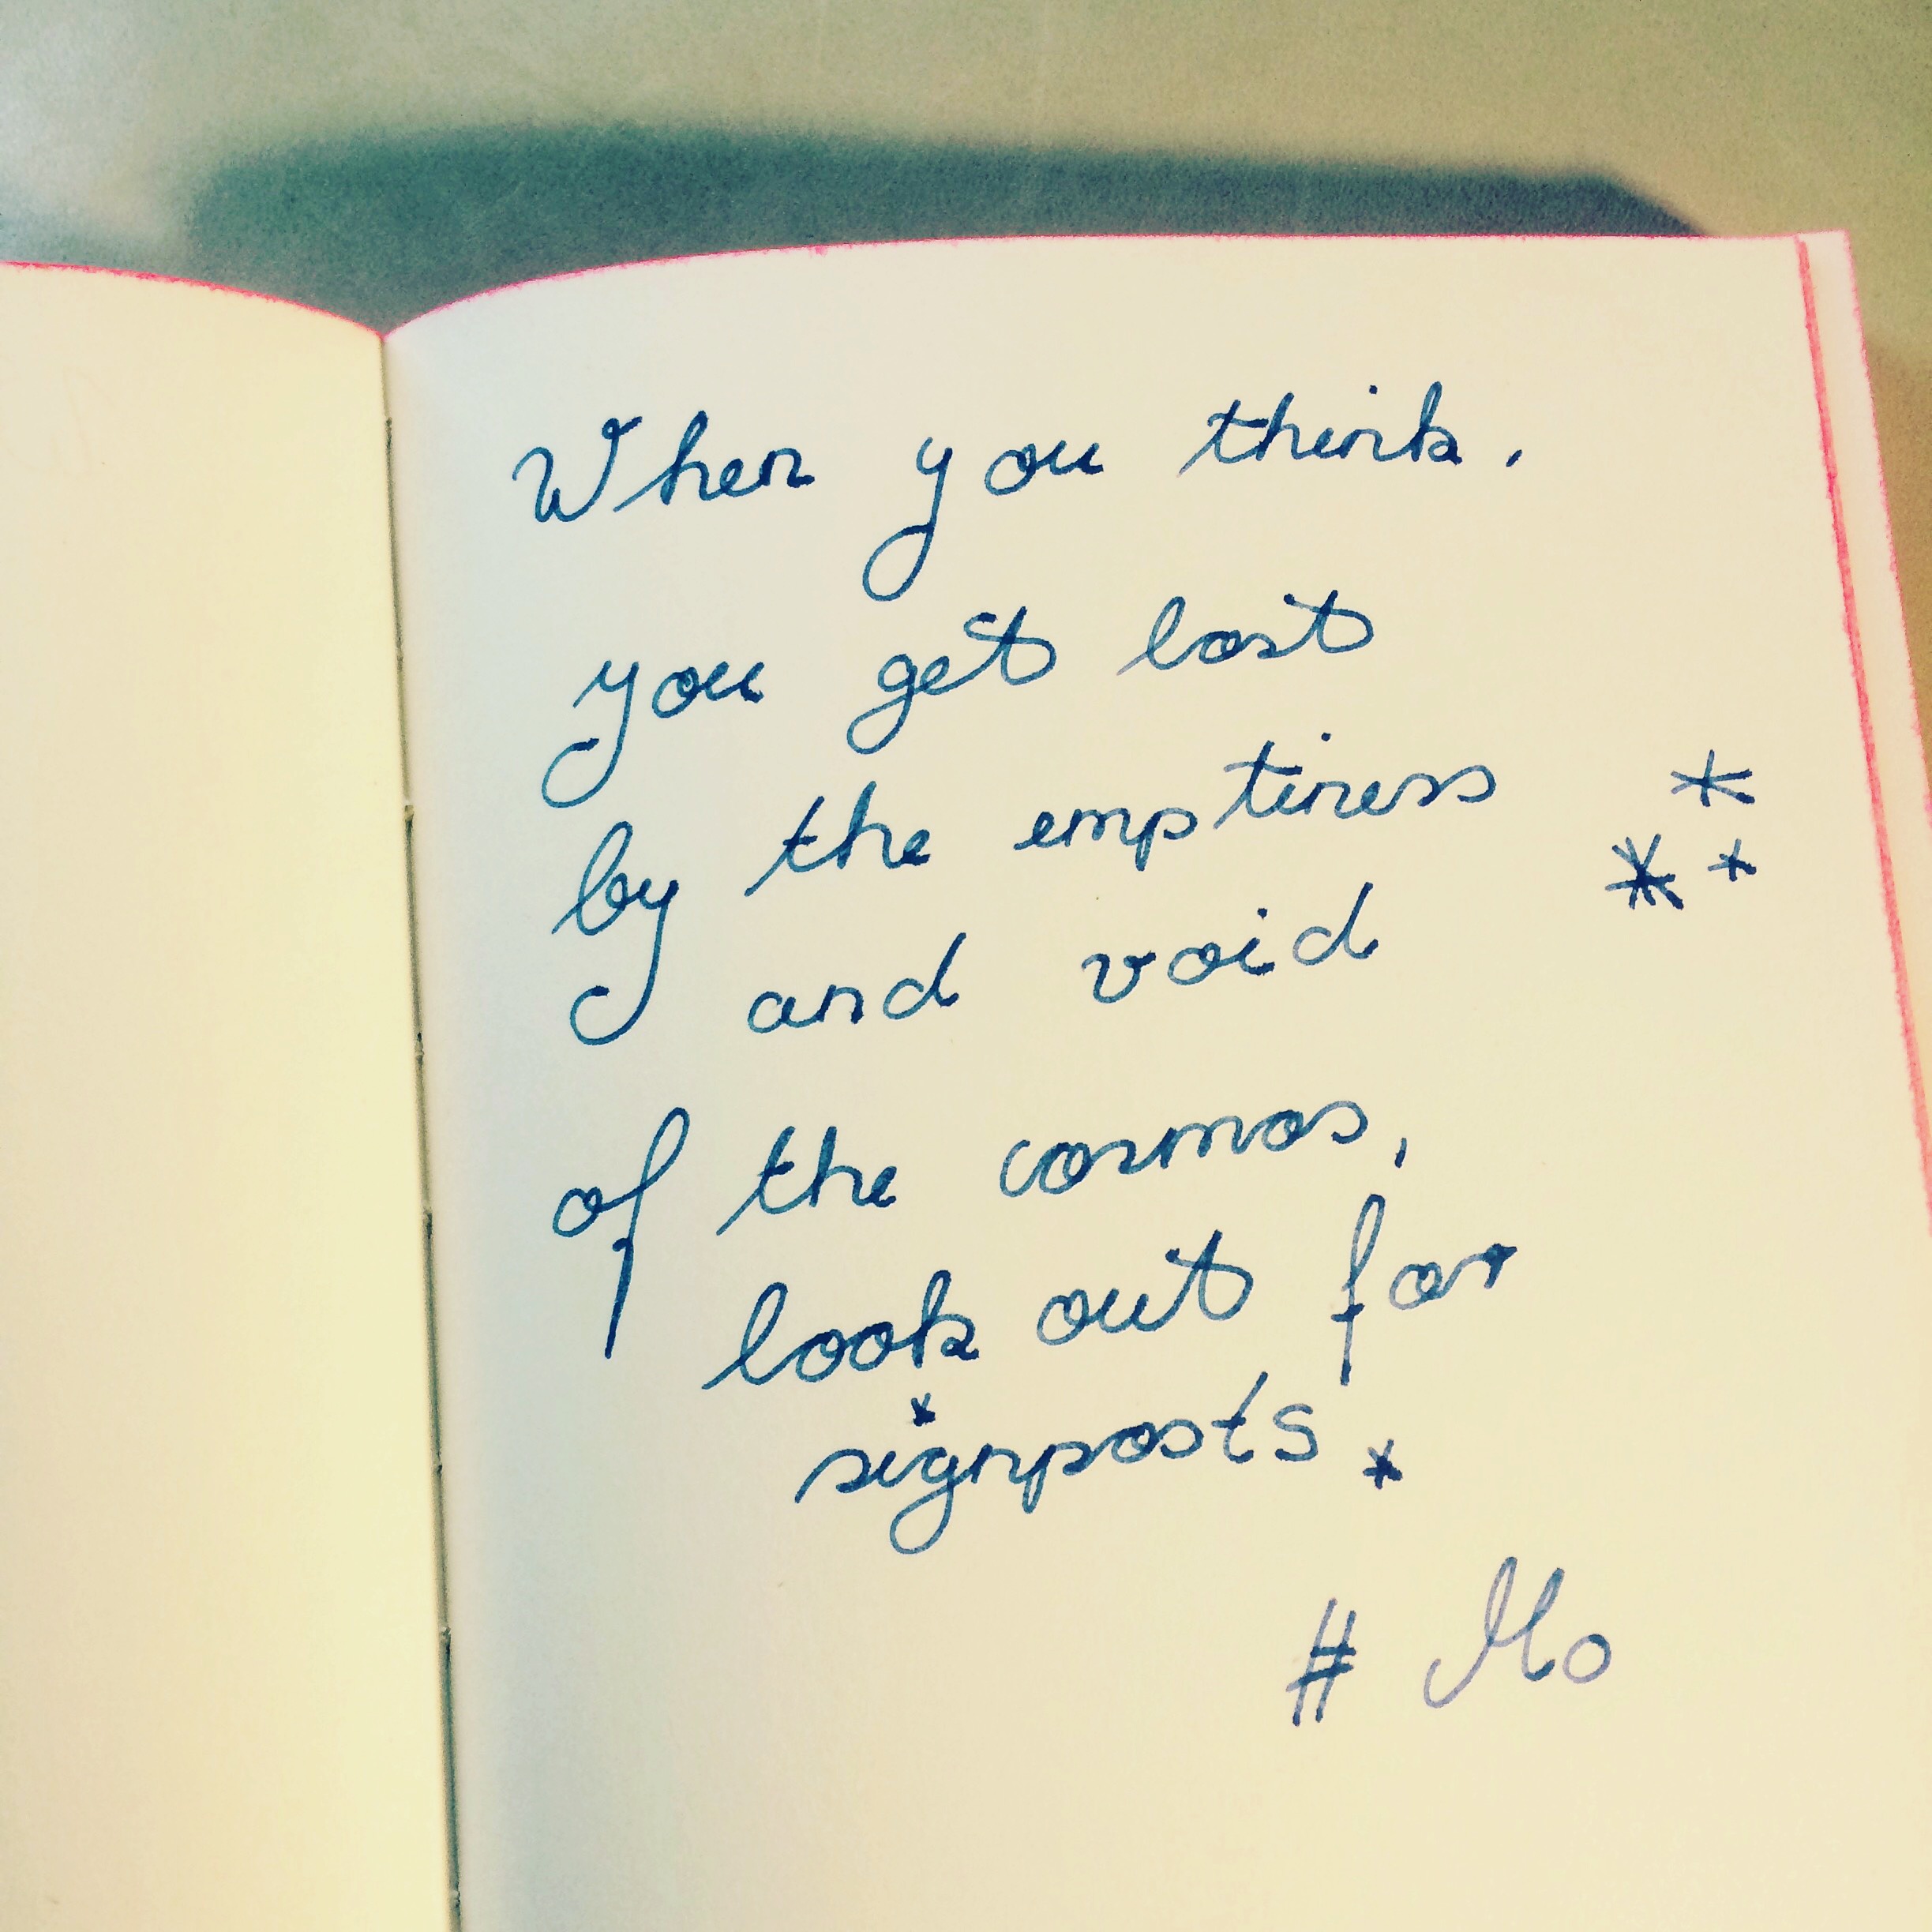 When you think,
you get lost
by the emptiness
and void
of the cosmos,
look out for
signposts.
# Mo